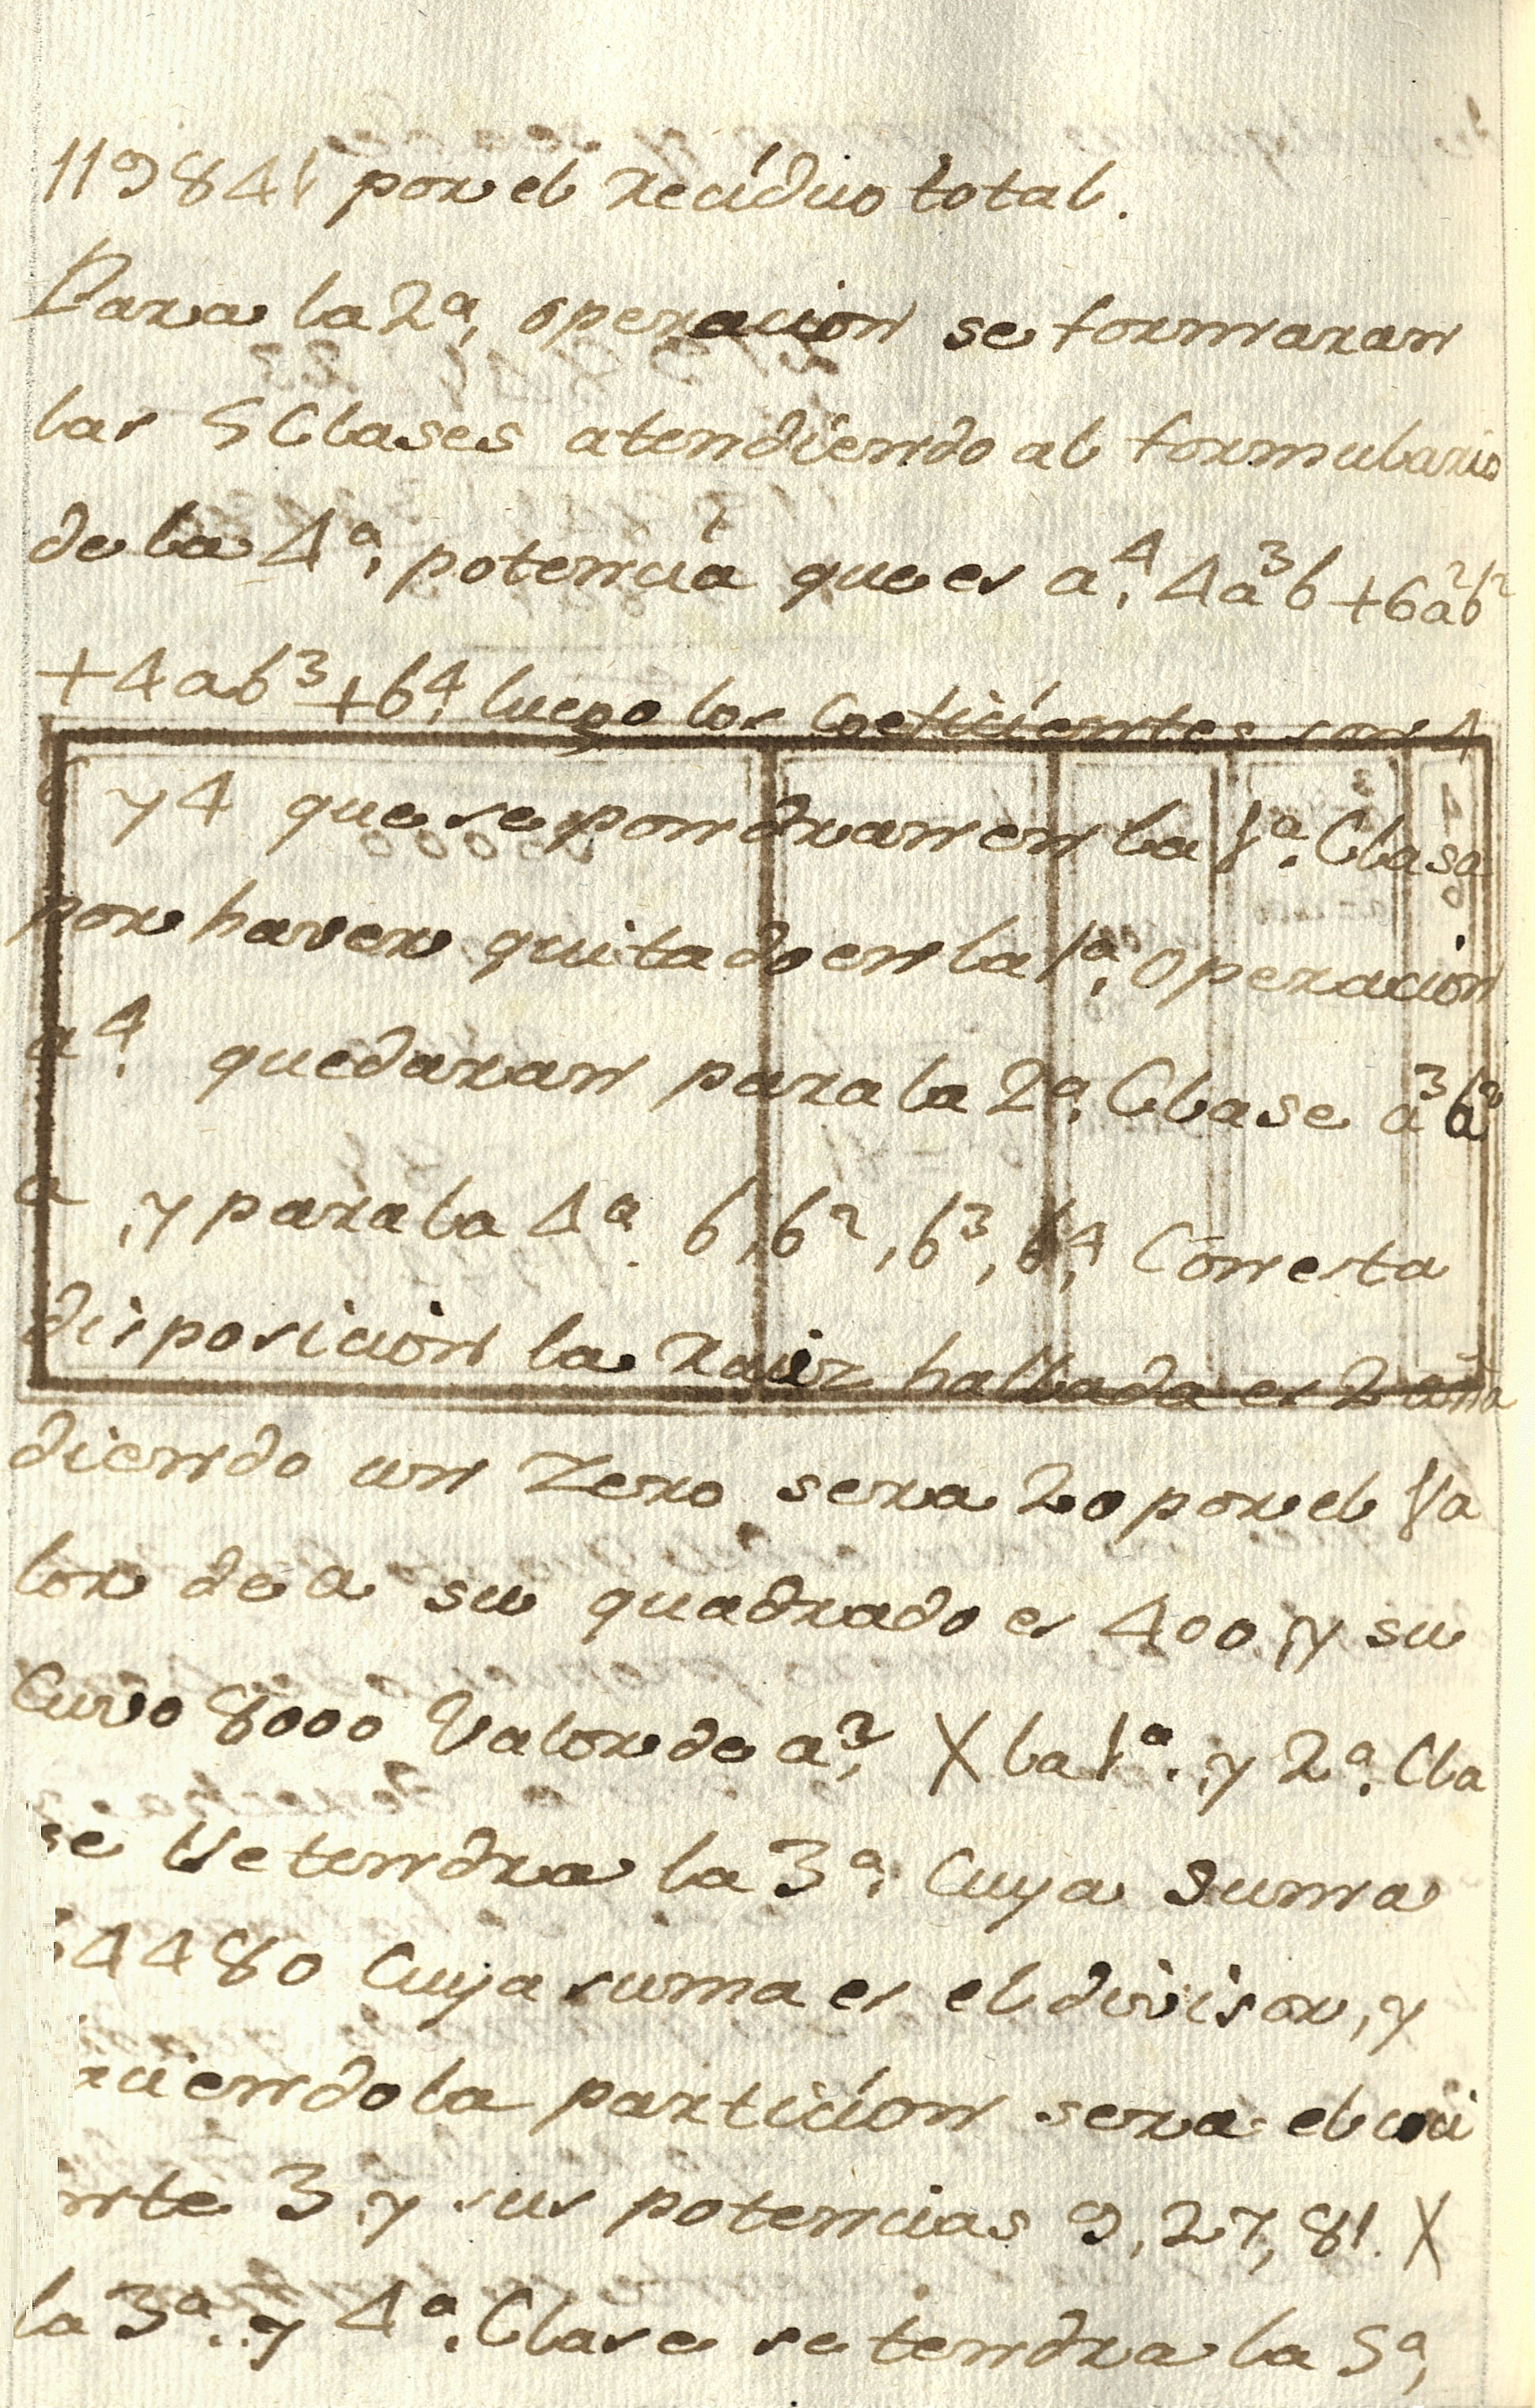 119841 por el reciduo total.
Para la 2ª, operacion se formaran
las 5 Clases atendiendo al formulario
de la 4ª, potencia que es a⁴, 4a³b+6a²b²
+4ab³+b⁴, luego los Coeficientes son 4
6 y 4 que se pondran en la 1ª. Clase
por haver quitado en la 1ª, operacion
a⁴, quedaran para la 2ª, Clase a³ a²
a, y para la 4ª. b, b², b³, b⁴, Con esta
disposicion la raiz hallada es 2 aña
diendo un Zero sera 20 por el Va
lor de a su quadrado es 400, y su
Cuvo 8000 Valor de a³, X la 1ª. y 2ª, Cla
se se tendra la 3ª, Cuya suma
34480 Cuya suma es el divisor, y
aciendo la particion sera el
nte 3, y sus potencias 9, 27, 81. X
la 3ª. y 4ª. Clase se tendra la 5ª,